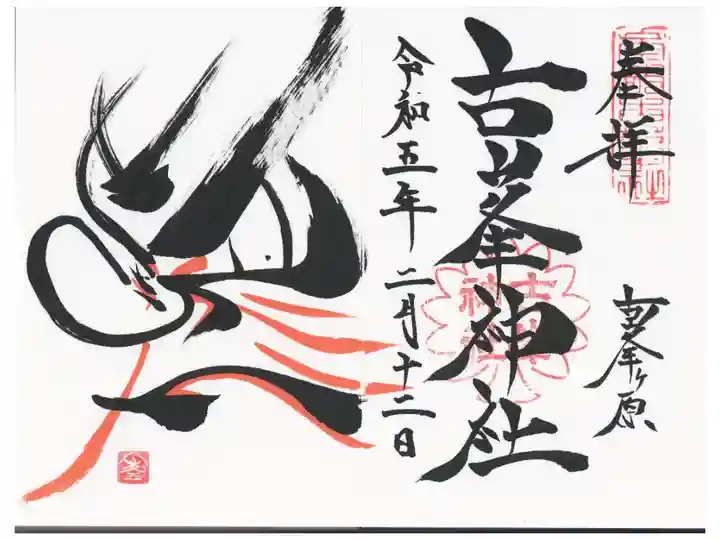 奉拝
古峯ヶ原
古峯神社
令和五年二月十二日